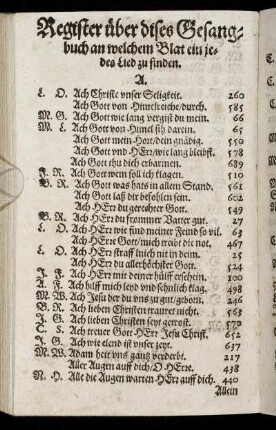 Register über dises Gesang-
buch an welchem Blat ein je-
des Lied zu finden.
A.
L. O. Ach Christe vnser Seligkeit. 260
Ach Gott von Himelreiche/durch. 585
M. G. Ach Gott wie lang vergist du mein. 66
M. L. Ach Gott von Himel sih darein. 65
Ach Gott mein Hort/dein gnädig. 550
Ach Gott vnd HErr/wie lang bleibst. 578
Ach Gott thu dich erbarmen. 689
J. R. Ach Gott wem soll ich klagen. 510
B. R. Ach Gott was hats in allem Stand. 561
Ach Gott laß dir befohlen sein. 602
Ach HErr du gerechter Gott. 149
B. R. Ach HErr du frommer Vatter gut. 27
L. O. Ach HErr wie sind meiner Feind so vil. 63
Ach HErre Gott/mich treibt die not. 467
L. O. Ach HErr straff mich nit in deim. 25
Ach HErr du allerhöchster Gott. 124
J. F. Ach HErr mit deiner hülff erschein. 300
A. F. Ach hilff mich leyd vnd sehnlich klag. 498
M. W. Ach Jesu der du vns zu gut/geborn. 246
B. R. Ach lieben Christen trauret nicht. 563
J. G. Ach lieben Christen seyt getrost. 570
C. S. Ach treuer Gott HErr Jesu Christ. 652
J. G. Ach wie elend ist vnser zeyt. 637
M. W. Adam heit vns gantz verderbt. 217
Aller Augen auff dich/O HErre. 438
N. H. Alle die Augen warten HErr auff dich. 440
Allein